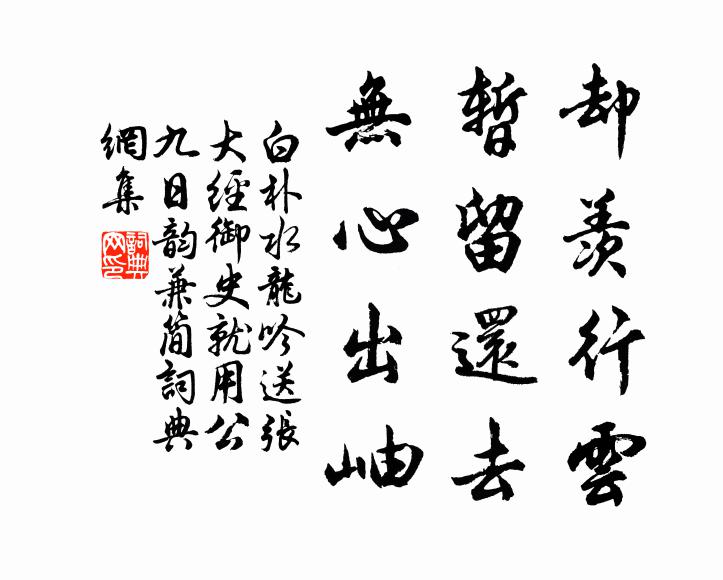 却羨行雲
暫留還去
無心出岫
白朴水龍吟送張
大經御史就用公
九日韵兼簡詞典
網集
詞典網印